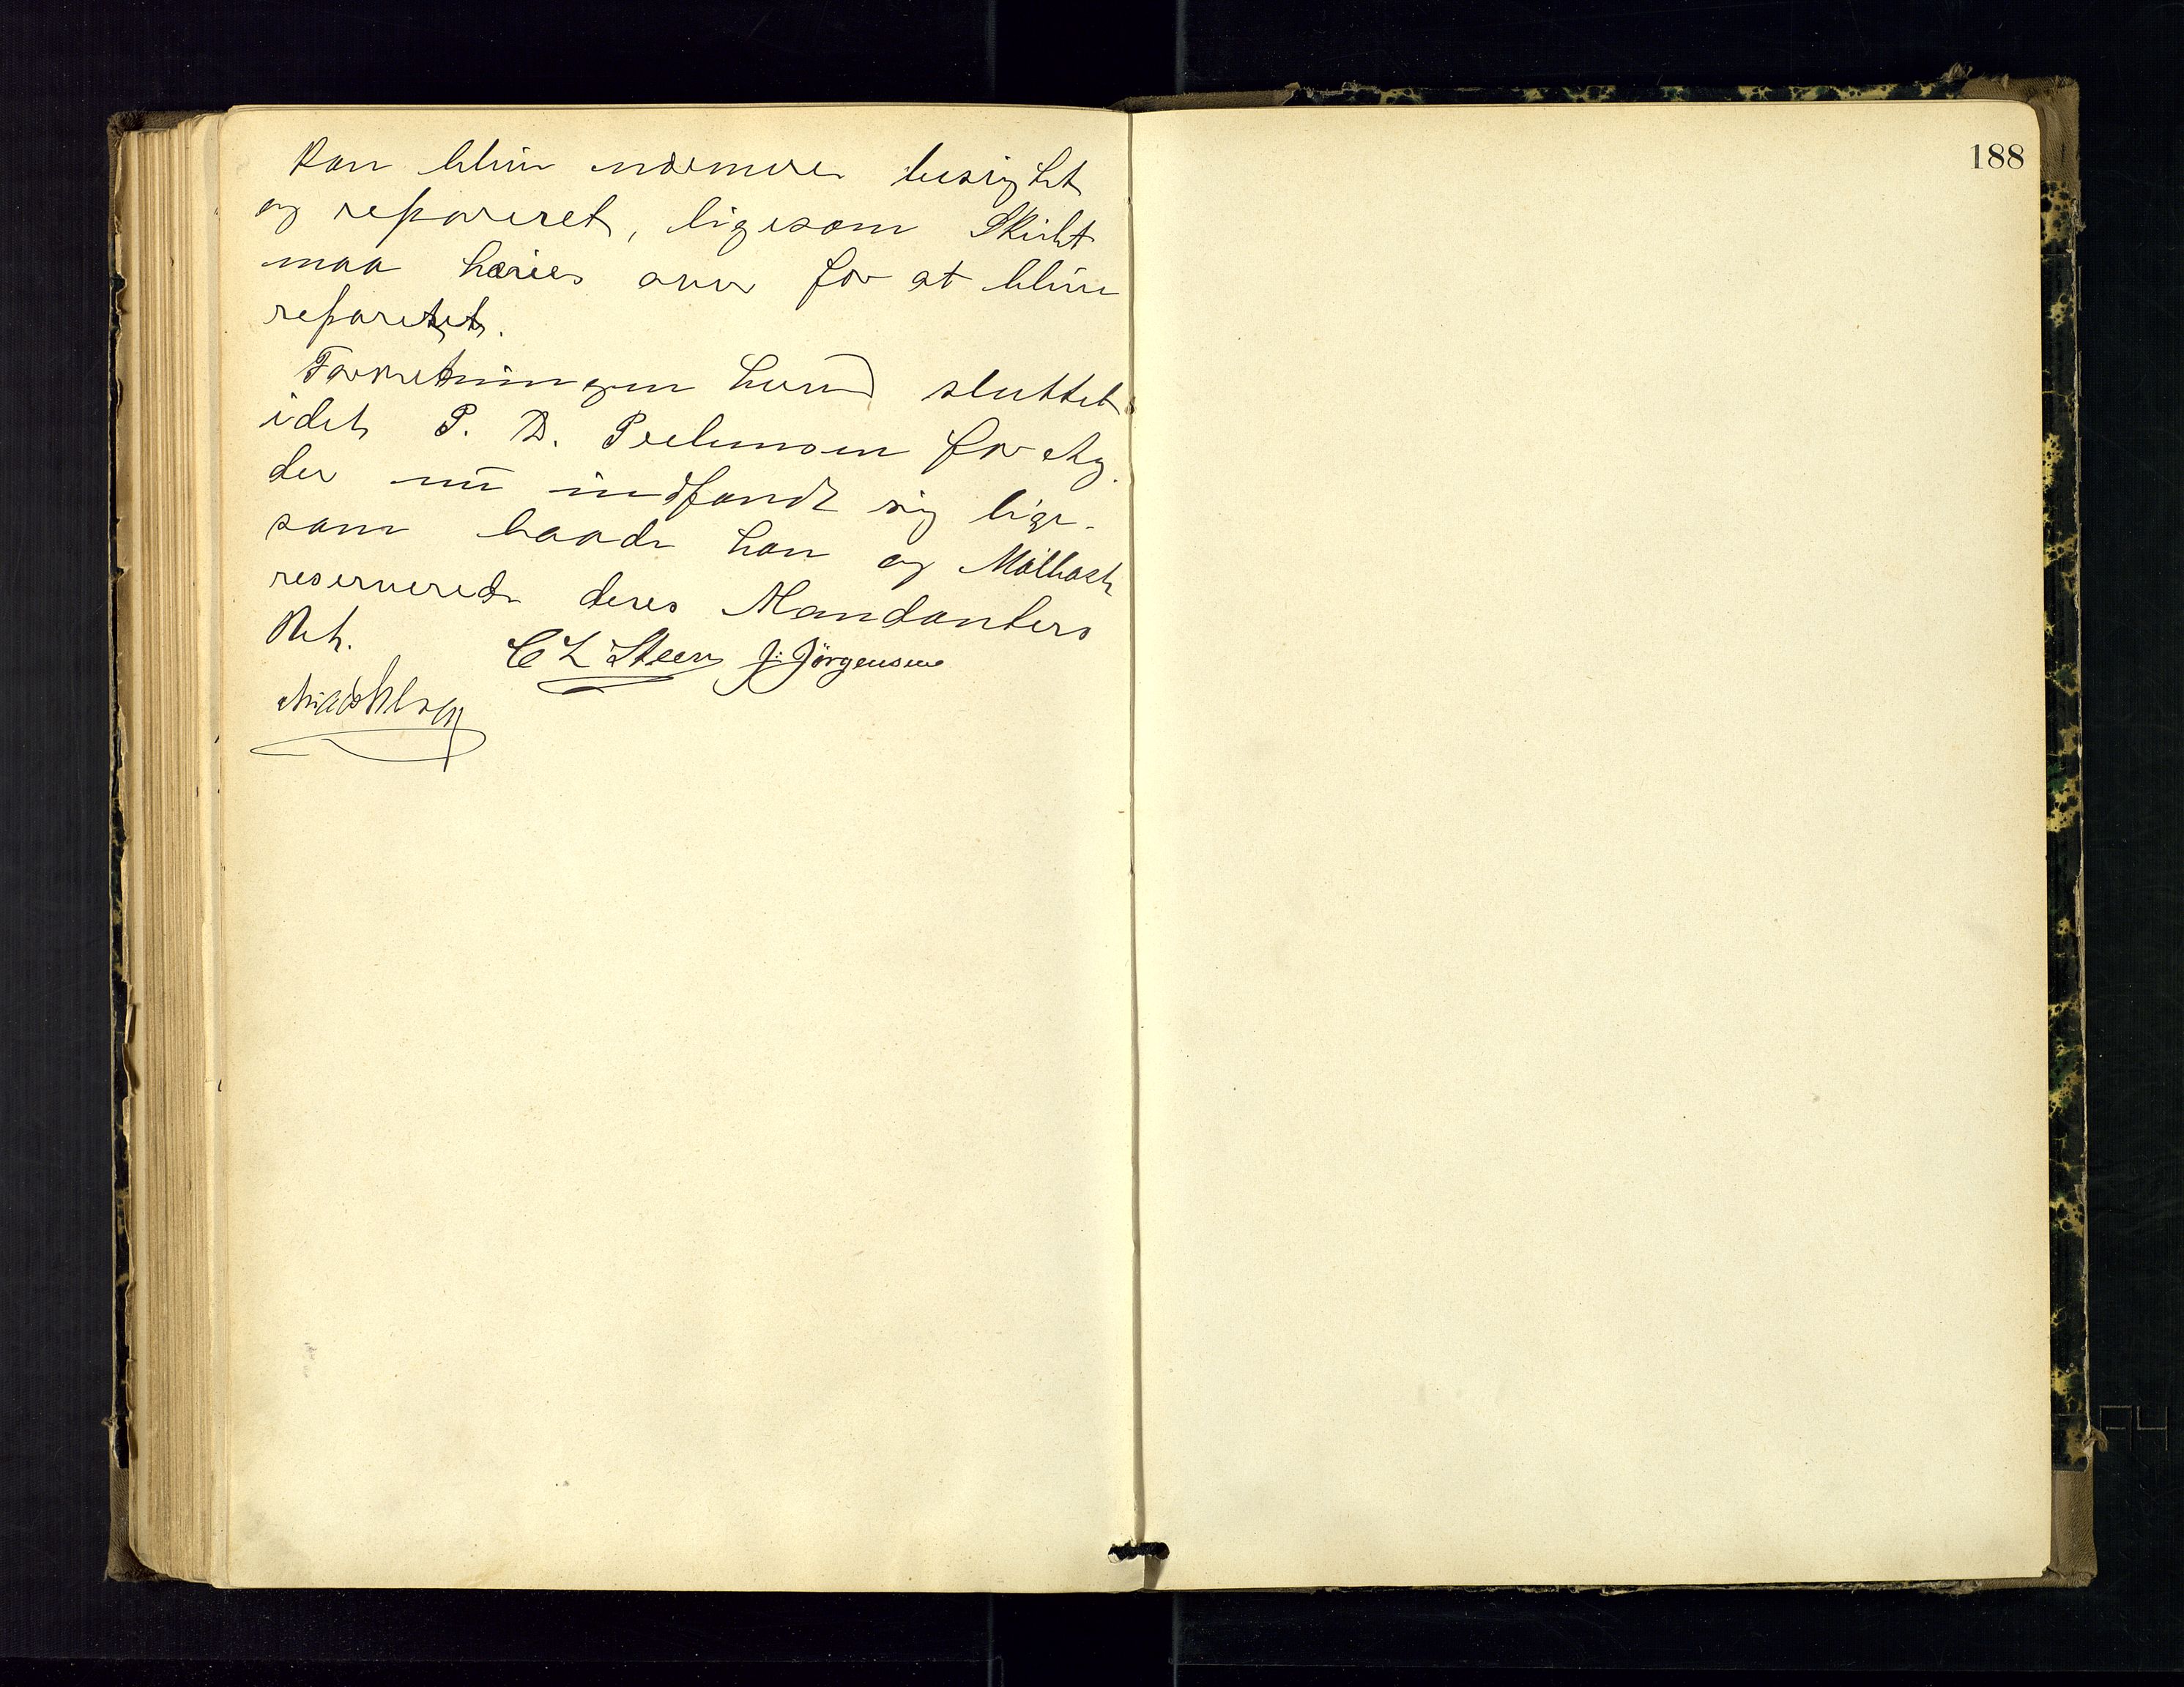 kan blive nærmere besigtet
og repareret, ligesom Skibet
maa hæles over for at blive
reparetet.
Forretningen hermed sluttet
idet P. D. for Ag.
der nu indfandt sig lige-
som baade han og Møllbach
reserverede deres Mandanters
Ret.
C L Steen J. Jörgensen
188